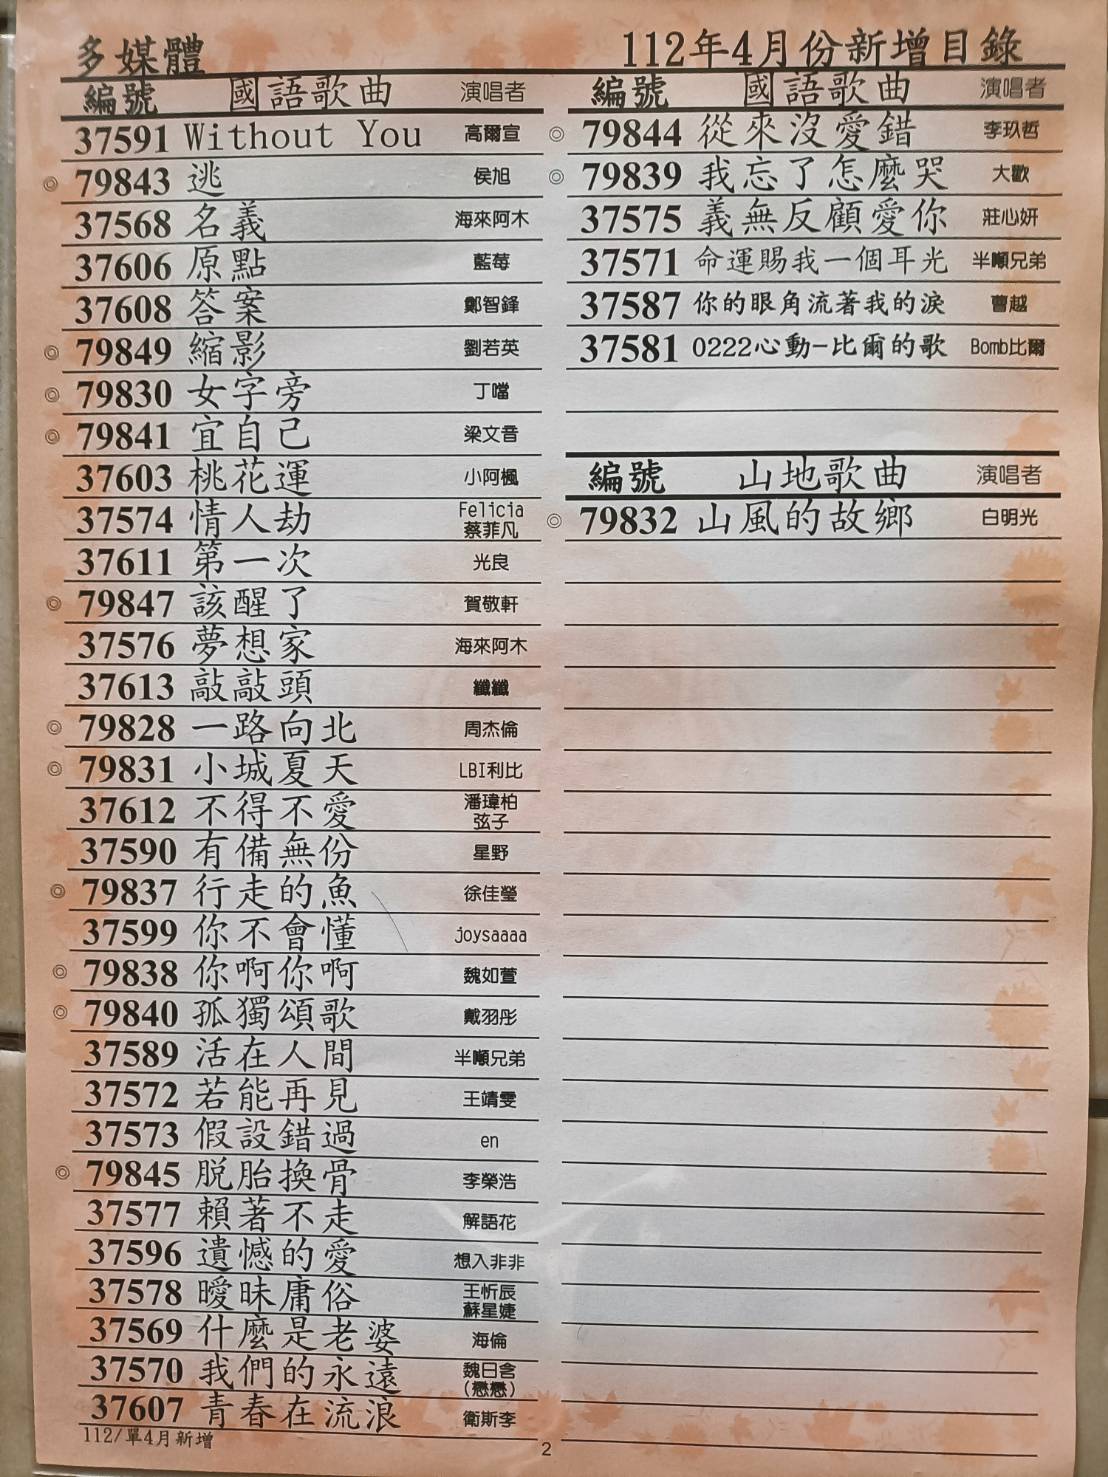 多媒體
112年4月份新增目錄
編號 國語歌曲 演唱者
37591 Without You 高爾宣
◎ 79843 逃 侯旭
37568 名義 海來阿木
37606 原點 藍莓
37608 答案 鄭智鋒
◎ 79849 縮影 劉若英
◎ 79830 女字旁 丁噹
◎ 79841 宜自己 梁文音
37603 桃花運 小阿楓
37574 情人劫 Felicia 蔡菲凡
37611 第一次 光良
◎ 79847 該醒了 賀敬軒
37576 夢想家 海來阿木
37613 敲敲頭 纖纖
◎ 79828 一路向北 周杰倫
◎ 79831 小城夏天 LBI利比
37612 不得不愛 潘瑋柏 弦子
37590 有備無份 星野
◎ 79837 行走的魚 徐佳瑩
37599 你不會懂 joysaaaa
◎ 79838 你啊你啊 魏如萱
◎ 79840 孤獨頌歌 戴羽彤
37589 活在人間 半噸兄弟
37572 若能再見 王靖雯
37573 假設錯過 en
◎ 79845 脱胎換骨 李榮浩
37577 賴著不走 解語花
37596 遺憾的愛 想入非非
37578 曖昧庸俗 王忻辰 蘇星婕
37569 什麼是老婆 海倫
37570 我們的永遠 魏曰含 (懋懋)
37607 青春在流浪 衛斯李
編號 國語歌曲 演唱者
◎ 79844 從來沒愛錯 李玖哲
◎ 79839 我忘了怎麼哭 大歡
37575 義無反顧愛你 莊心妍
37571 命運賜我一個耳光 半噸兄弟
37587 你的眼角流著我的淚 曹越
37581 0222心動-比爾的歌 Bomb比爾
編號 山地歌曲 演唱者
◎ 79832 山風的故鄉 白明光
112/單4月新增
2